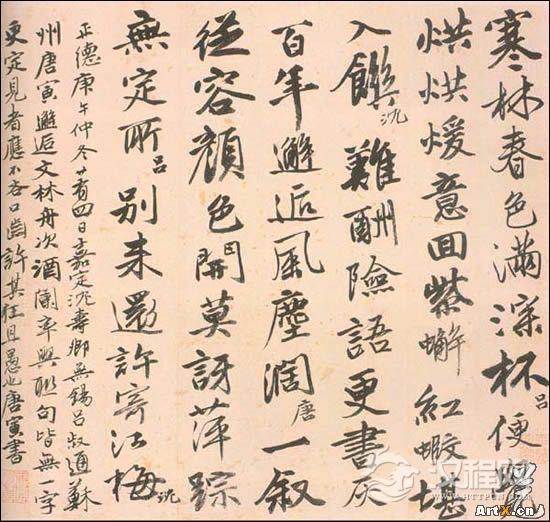 寒林春色滿深杯呂便覺
烘烘煖意回紫蠏紅蝦堪
入饌沈難酬險語更書灰
百年邂逅風塵濶唐一敘
從容顏色開莫訝萍踪
無定所呂別來還許寄江梅沈
正德庚午仲冬廿有四日嘉定沈壽卿無錫呂叔通蘇
州唐寅邂逅文林舟次酒闌率興聯句皆無一字
更定見者應不吝口齒許其狂且愚也唐寅書
汉程网
HTTPCN.COM
ArtX.cn